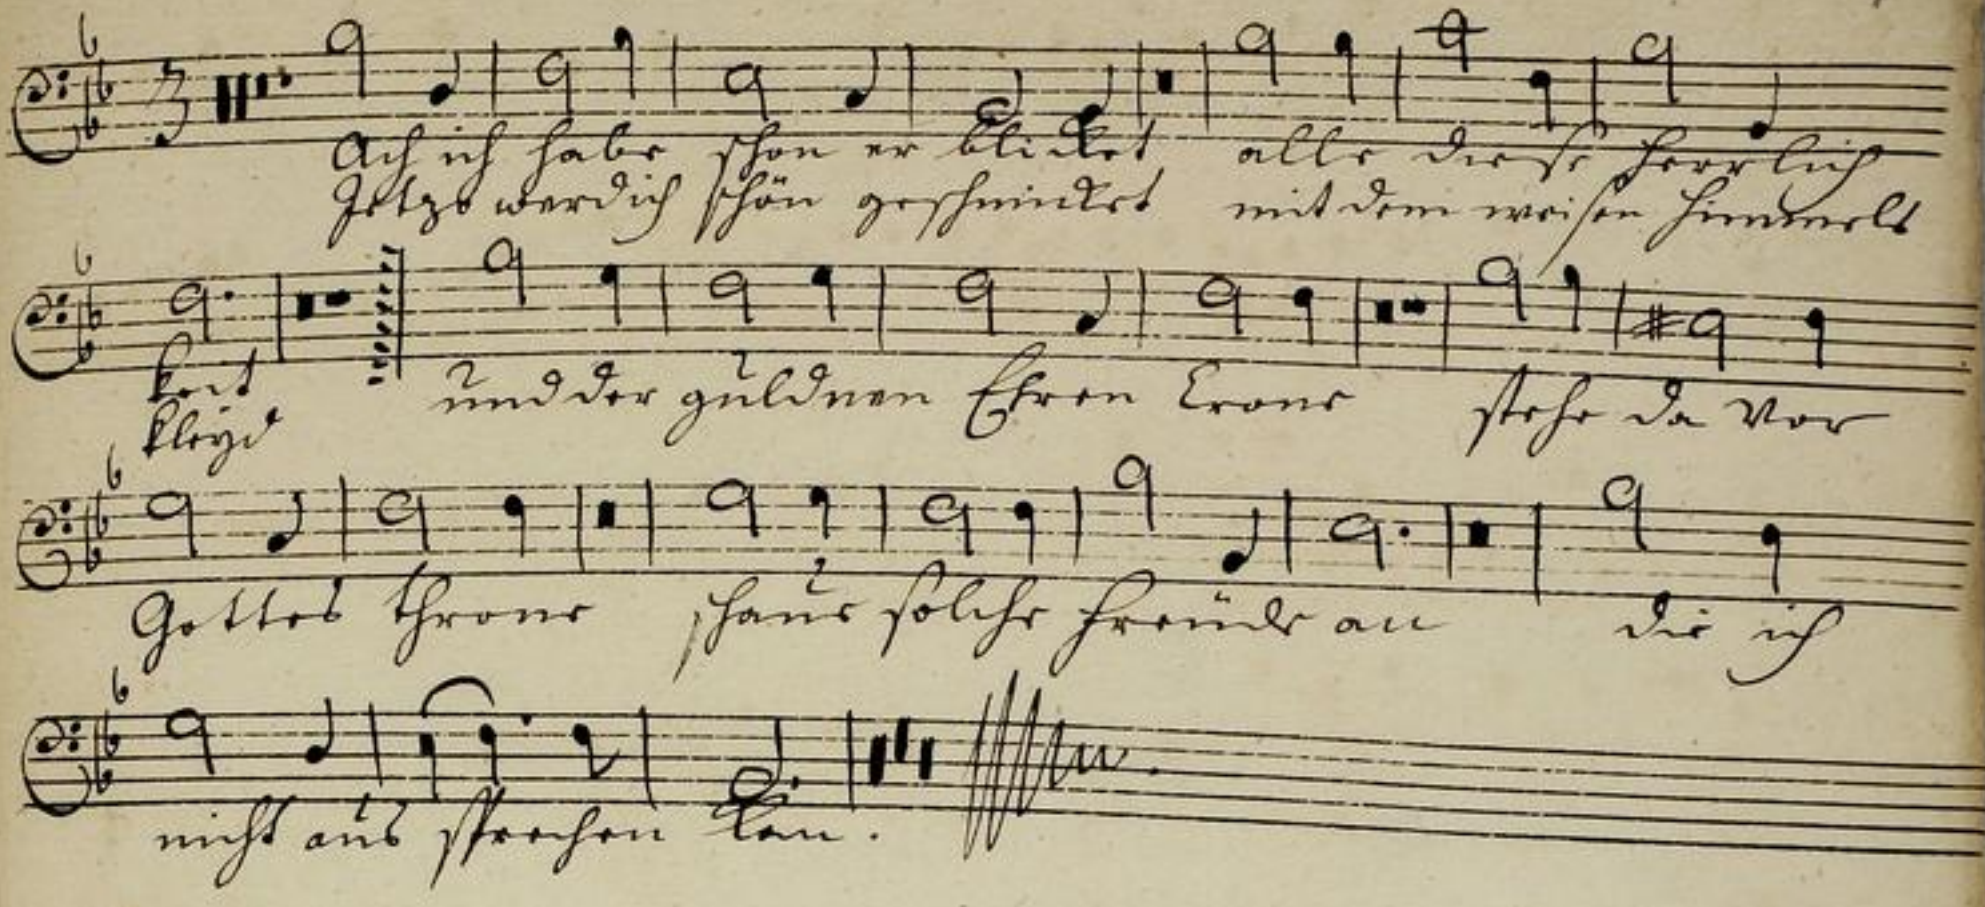 Ach ich habe schon er blicket alle diese Herrlich
Jetzo werd ich schön geschmücket mit dem weisen Himmels
keit
kleyd
und der güldnen Ehren Crone stehe da vor
Gottes throne schaue solche freüde an die ich
nicht aus sprechen kan.